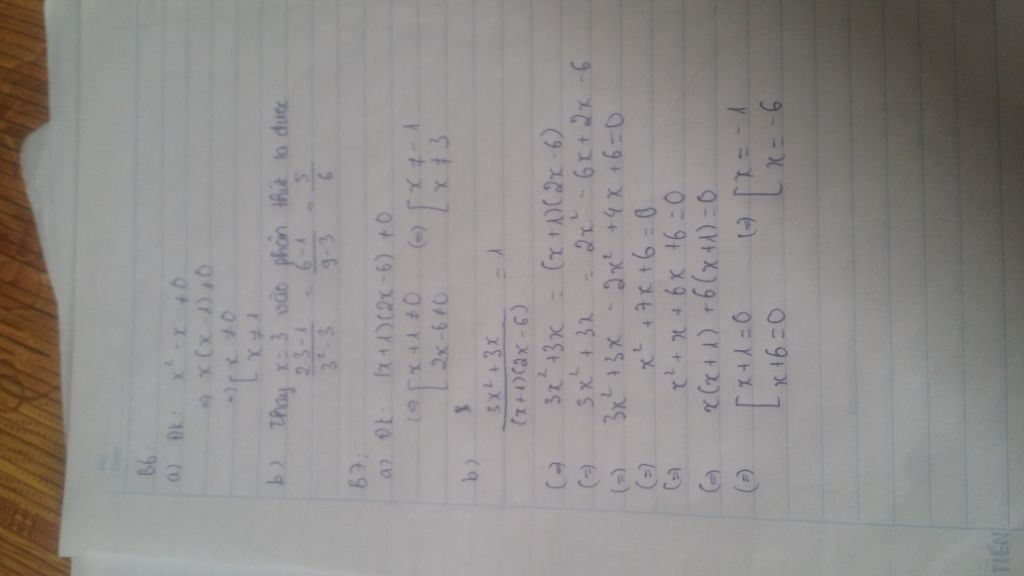 B6.
a) Đk: x² - x ≠ 0
=> x(x-1) ≠ 0
=> [ x ≠ 0
[ x ≠ 1
b) Thay x = 3 vào phân thức ta được
2.3-1 / 3²-3 = 6-1 / 9-3 = 5 / 6
B7:
a) Đk: (x+1)(2x-6) ≠ 0
(=) [ x+1 ≠ 0 (=) [ x ≠ -1
[ 2x-6 ≠ 0 [ x ≠ 3
b) 3x²+3x / (x+1)(2x-6) = 1
(=) 3x²+3x = (x+1)(2x-6)
(=) 3x²+3x = 2x² - 6x + 2x - 6
(=) 3x²+3x - 2x² + 4x + 6 = 0
(=) x² + 7x + 6 = 0
(=) x² + x + 6x + 6 = 0
(=) x(x+1) + 6(x+1) = 0
(=) [ x+1 = 0 (=) [ x = -1
[ x+6 = 0 [ x = -6
TIẾN